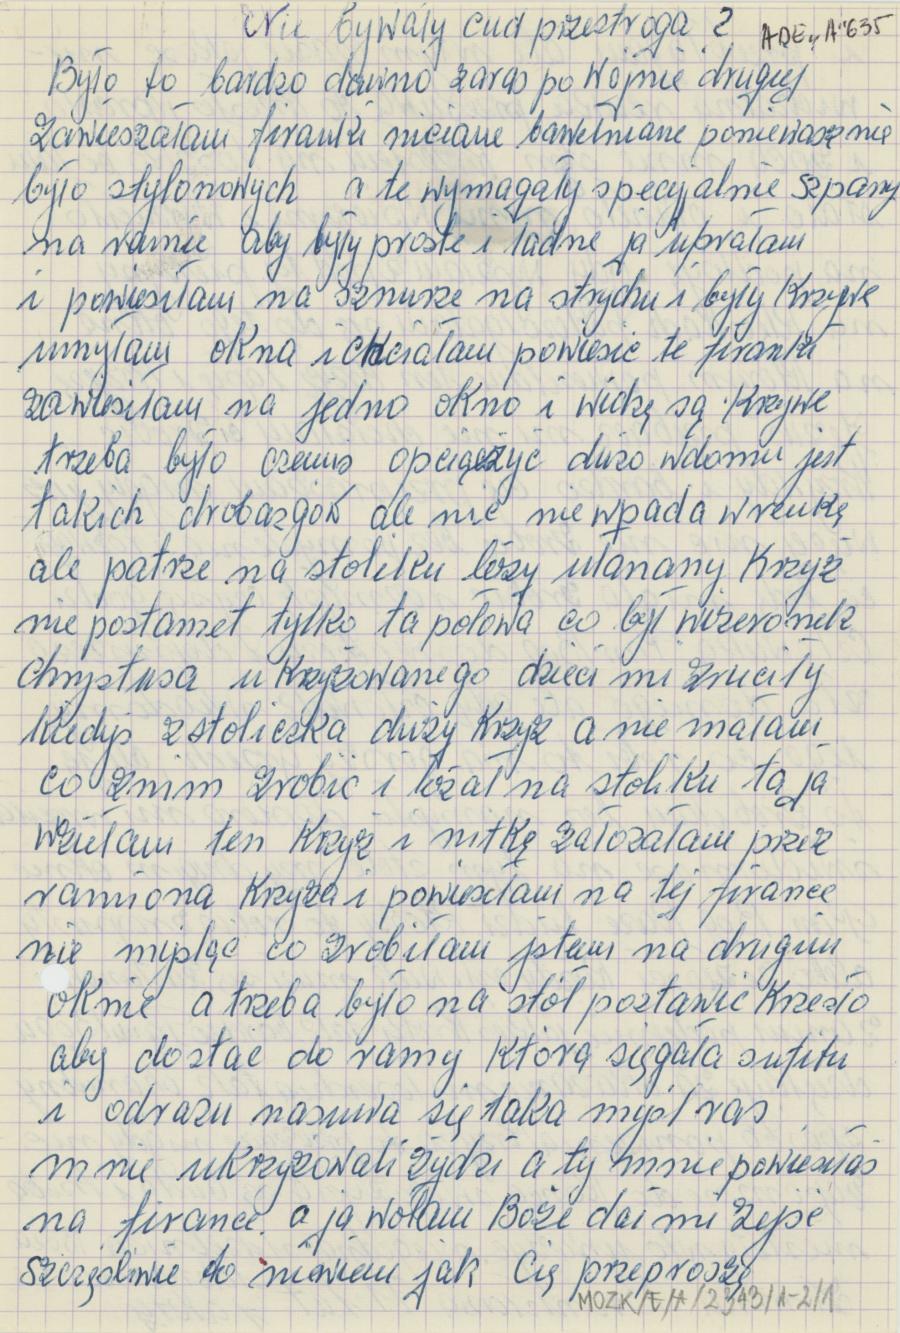 Nie bywały cud przestroga ?
ADE, A" 635
Było to bardzo dawno zaras po Wojnie drugiej
zawieszałam firanki niciane bawełniane poniewasz nie
było stylonowych a te wymagały specyjalnie szpany
na ramie aby były proste i ładne ja uprałam
i powiesiłam na sznurze na strychu i były Krzywe
umyłam okna i chciałam powiesic te firanki
zawiesiłam na jedno okno i widzę są Krzywe
trzeba było czemś opciężyć dużo wdomu jest
takich drobazgów ale nic nie wpada wrenkę
ale patrze na stoliku leży ułanany Krzyż
nie postamet tylko ta połowa co był wizeronek
Chrystusa ukrzyżowanego dzieci mi zruciły
Kiedyś zstoliczka duży Krzyż a nie małam
co znim zrobić i leżał na stoliku ta ja
wziełam ten Krzyż i nitkę załozałam przez
ramiona Krzyża i powiesiłam na tej firance
nie mysląc co zrobiłam jstem na drugim
oknie a trzeba było na stół postawić Krzesło
aby dostać do ramy Którą sięgała sufitu
i odrazu nasuwa się taka myśl ras
mnie ukrzyżowali żydzi a ty mnie powiesiłaś
na firance. a ja wołam Boże dai mi zejść
szczęśliwie do niewiem jak Cię przeproszę
MOZK/E/A/2343/1-2/1